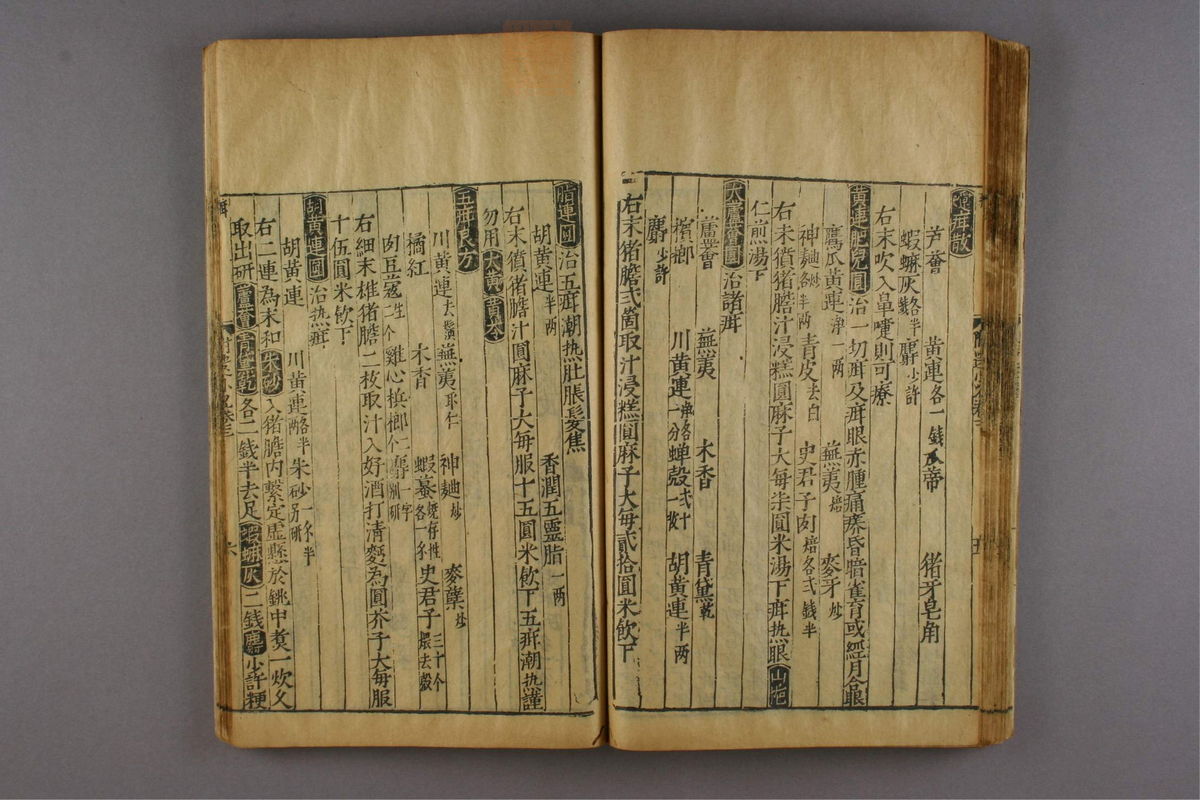 疳散
芦薈 黄連各一錢 瓜蒂 猪牙皂角
蝦蟆灰各半錢 麝少許
右末吹入鼻嚏則可療
黄連肥兒圓 治一切疳及疳眼赤腫痛痒昏暗雀盲或經月合眼
鷹爪黄連淨一兩 蕪荑焙 麥牙炒
神麯炒各半兩 青皮去白 史君子肉焙各弍錢半
右末獖猪膽汁浸糕圓麻子大每柒圓米湯下疳热眼 山梔
仁煎湯下
大蘆薈圓 治諸疳
蘆薈 蕪荑 木香 青黛乾
檳榔 川黄連各一分 蝉殼弍十一枚 胡黄連半两
麝少許
右末猪膽弍箇取汁浸糕圓麻子大每貳拾圓米飲下
脂連圓 治五疳潮热肚脹髮焦
胡黄連半两 香潤五靈脂一两
右末獖猪膽汁圓麻子大每服十五圓米飲下五疳潮热謹
勿用 大黄 黄芩
五疳良方
川黄連去鬚 蕪荑取仁 神麯炒 麥蘖炒
橘紅 木香 蝦蟇燒存性各一分 史君子三十个煨去殼
肉豆蔻生二个 雞心梹榔二个 麝一字别研
右細末雄猪膽二枚取汁入好酒打清麪為圓芥子大每服
十伍圓米飲下
胡黄連圓 治热疳
胡黄連 川黄連各半两 朱砂一分半别研
右二連為末和 朱砂 入猪膽内繫定虚懸於銚中煮一炊久
取出研 蘆薈 青黛乾 各二錢半去足 蝦蟆灰 二錢 麝 少許粳
六